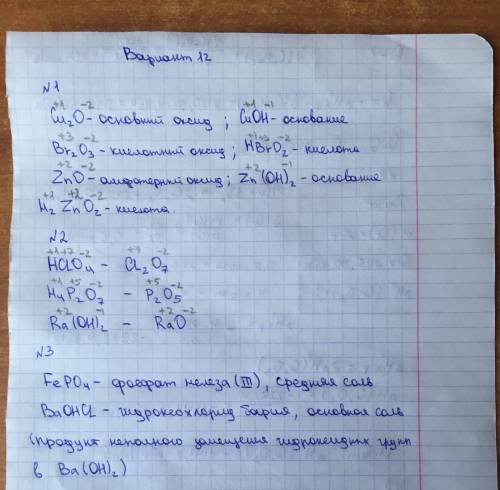 Вариант 12
№1
+1 -2 +1 -1
Cu₂O - основний оксид ; CuOH - основание
+3 -2 +1 +3 -2
Br₂O₃ - кислотний оксид ; HBrO₂ - кислота
+2 -2 +2 -1
ZnO - амфотерний оксид ; Zn(OH)₂ - основание
+1 +2 -2
H₂ZnO₂ - кислота.
№2
+1 +7 -2 +7 -2
HCLO₄ - CL₂O₇
+1 +5 -2 +5 -2
H₄P₂O₇ - P₂O₅
+2 -1 +2 -2
Ra(OH)₂ - RaO
№3
FePO₄ - фосфат железа (III), средняя соль
BaOHCL - гидроксохлорид бария, основная соль
(продукт неполного замещения гидроксидних групп
в Ba(OH)₂)